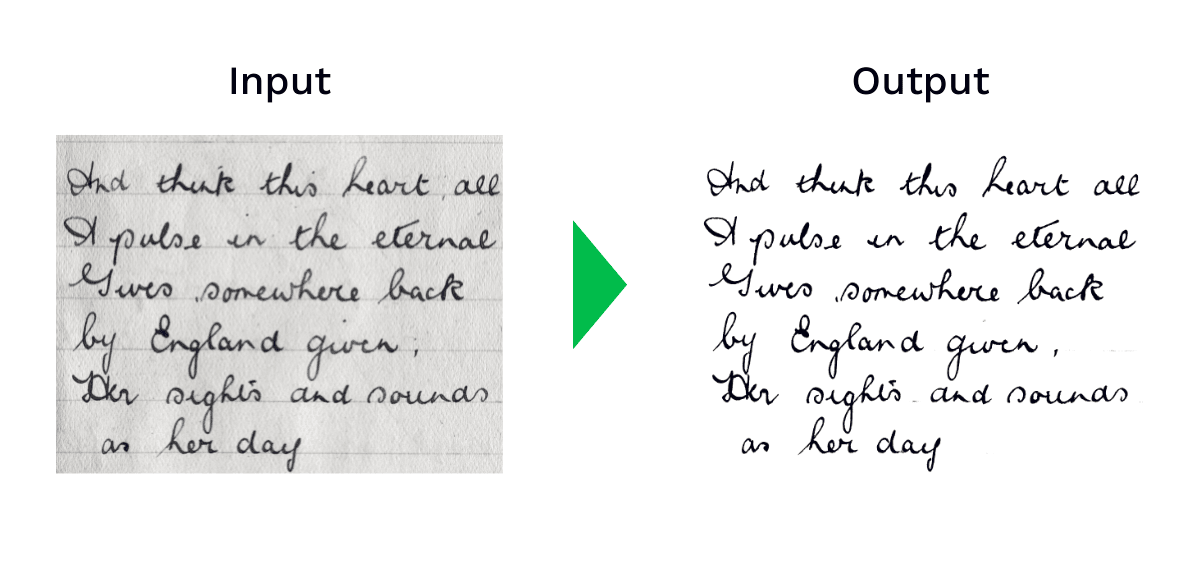 Input
And think this heart, all
A pulse in the eternal
Gives somewhere back
by England given;
Her sights and sounds
as her day
Output
And think this heart all
A pulse in the eternal
Gives somewhere back
by England given,
Her sights and sounds
as her day